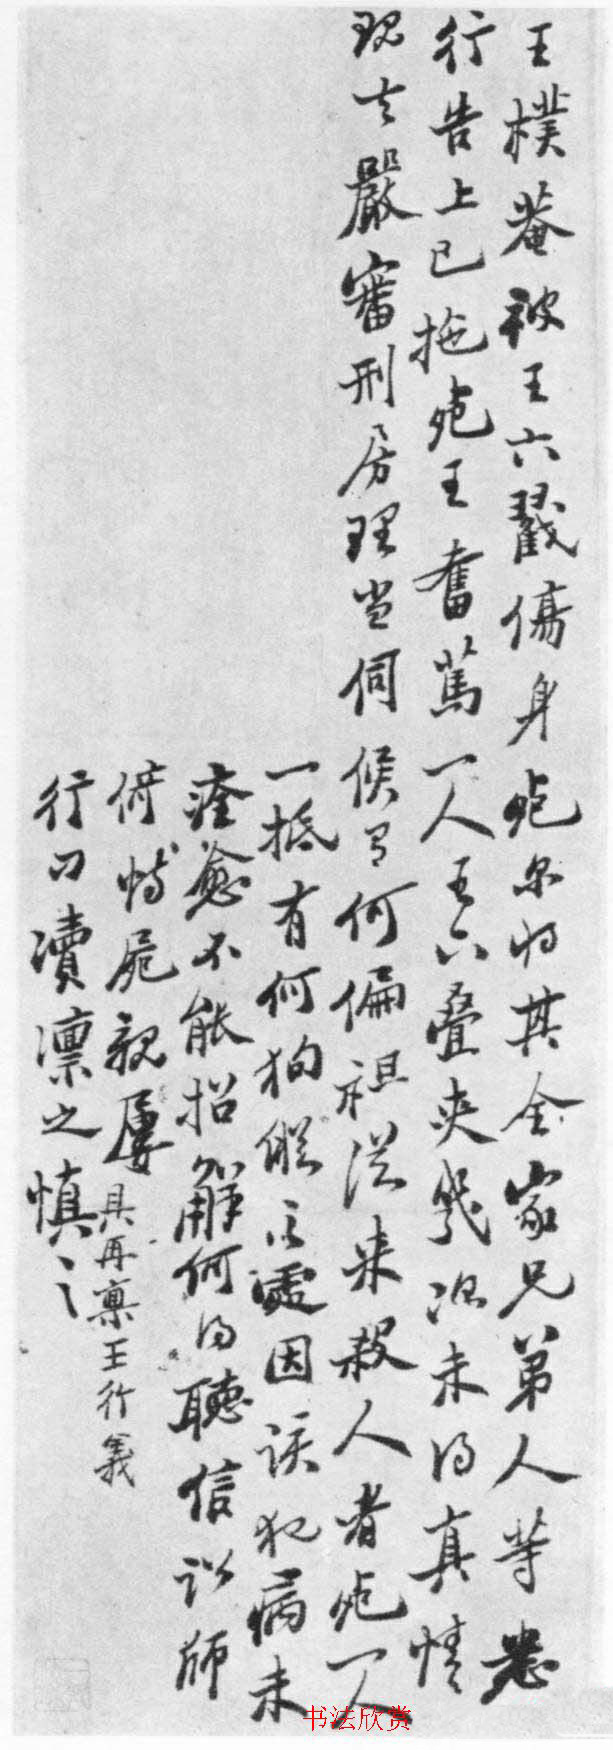 王樸菴被王六戳傷身死尔将其全家兄弟人等悉
行告上已拖死王奮篤一人王六叠夾幾次未得真情
現嚴審刑房理当伺候有何偏袒從来殺人者死一人
一抵有何狥縱之處因該犯病未
痊愈不能招解何得聽信訟師
倚恃屍親屢
具再禀王行義
行叩瀆凛之慎之
书法欣赏